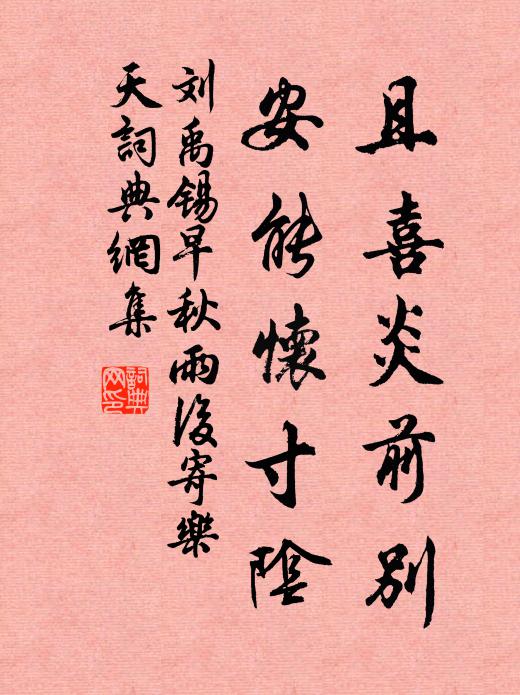 且喜炎前别
安能懷寸陰
刘禹锡早秋雨後寄樂
天詞典網集
詞典网印